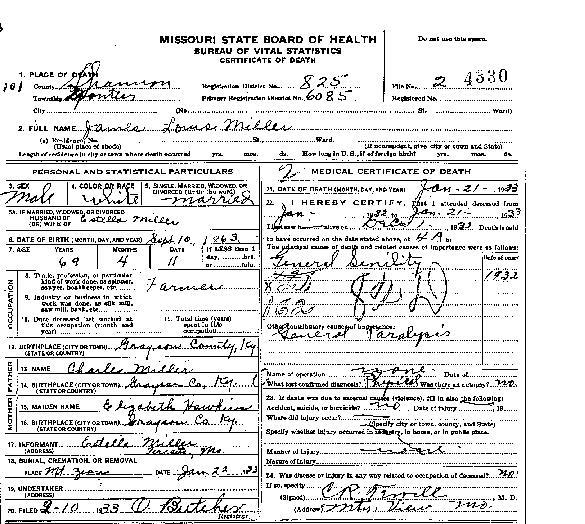 MISSOURI STATE BOARD OF HEALTH
BUREAU OF VITAL STATISTICS
CERTIFICATE OF DEATH
Do not use this space.
1. PLACE OF DEATH
County Shannon Registration District No. 825 File No. 2 4530
Township Montier Primary Registration District No. 6085 Registered No.
City (No. St. Ward)
2. FULL NAME James Louis Miller
(a) Residence, No. St. Ward.
(Usual place of abode) (If nonresident, give city or town and State)
Length of residence in city or town where death occurred yrs. mos. ds. How long in U. S., if of foreign birth? yrs. mos. ds.
PERSONAL AND STATISTICAL PARTICULARS
3. SEX Male
4. COLOR OR RACE White
5. SINGLE, MARRIED, WIDOWED, OR DIVORCED married
5A. IF MARRIED, WIDOWED, OR DIVORCED
HUSBAND OF (OR) WIFE OF Estella Miller
6. DATE OF BIRTH (MONTH, DAY, AND YEAR) Sept 10, 1863
7. AGE YEARS 69 MONTHS 4 DAYS 11 If LESS than 1 day, hrs. or min.
OCCUPATION
8. Trade, profession, or particular kind of work done, as spinner, sawyer, bookkeeper, etc. Farmer
9. Industry or business in which work was done, as silk mill, saw mill, bank, etc.
10. Date deceased last worked at this occupation (month and year)
11. Total time (years) spent in this occupation
12. BIRTHPLACE (CITY OR TOWN) Grayson County, Ky
(STATE OR COUNTRY)
FATHER
13. NAME Charles Miller
14. BIRTHPLACE (CITY OR TOWN) Grayson Co, Ky.
(STATE OR COUNTRY)
MOTHER
15. MAIDEN NAME Elizabeth Hawkins
16. BIRTHPLACE (CITY OR TOWN) Grayson Co Ky
(STATE OR COUNTRY)
17. INFORMANT Estella Miller
(ADDRESS) Mo.
18. BURIAL, CREMATION, OR REMOVAL
PLACE Mt. Zion DATE Jan 22 33
19. UNDERTAKER
(ADDRESS)
20. FILED 2-10 33 Butcher
Registrar
2 MEDICAL CERTIFICATE OF DEATH
21. DATE OF DEATH (MONTH, DAY, AND YEAR) Jan-21- 1933
22. I HEREBY CERTIFY, That I attended deceased from
Jan- 1932 to Jan-21- 1933
Death is said
to have occurred on the date stated above, at 4 A m.
The principal cause of death and related causes of importance were as follows:
General Senility Date of onset 1932
162
Other contributory causes of importance:
General Paralysis
Name of operation none Date of
What test confirmed diagnosis? Physical Was there an autopsy? no
23. If death was due to external causes (violence), fill in also the following:
Accident, suicide, or homicide? no Date of injury 19
Where did injury occur?
(Specify city or town, county, and State)
Specify whether injury occurred in industry, in home, or in public place.
Manner of injury
Nature of injury
24. Was disease or injury in any way related to occupation of deceased? no
If so, specify
(Signed) M. D.
(Address) Mtn. View Mo.